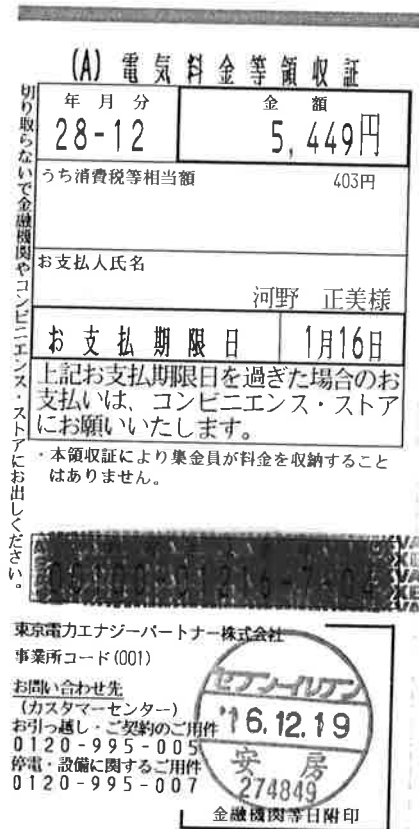 (A) 電気料金等領収証
切り取らないで金融機関やコンビニエンス・ストアにお出しください。
年月分
金額
28-12
5,449円
うち消費税等相当額
403円
お支払人氏名
河野 正美様
お支払期限日
1月16日
上記お支払期限日を過ぎた場合のお
支払いは、コンビニエンス・ストア
にお願いいたします。
・本領収証により集金員が料金を収納すること
はありません。
東京電力エナジーパートナー株式会社
事業所コード(001)
お問い合わせ先
(カスタマーセンター)
お引っ越し・ご契約のご用件
0120-995-005
停電・設備に関するご用件
0120-995-007
セブン-イレブン
'16.12.19
安房
274849
金融機関等日附印